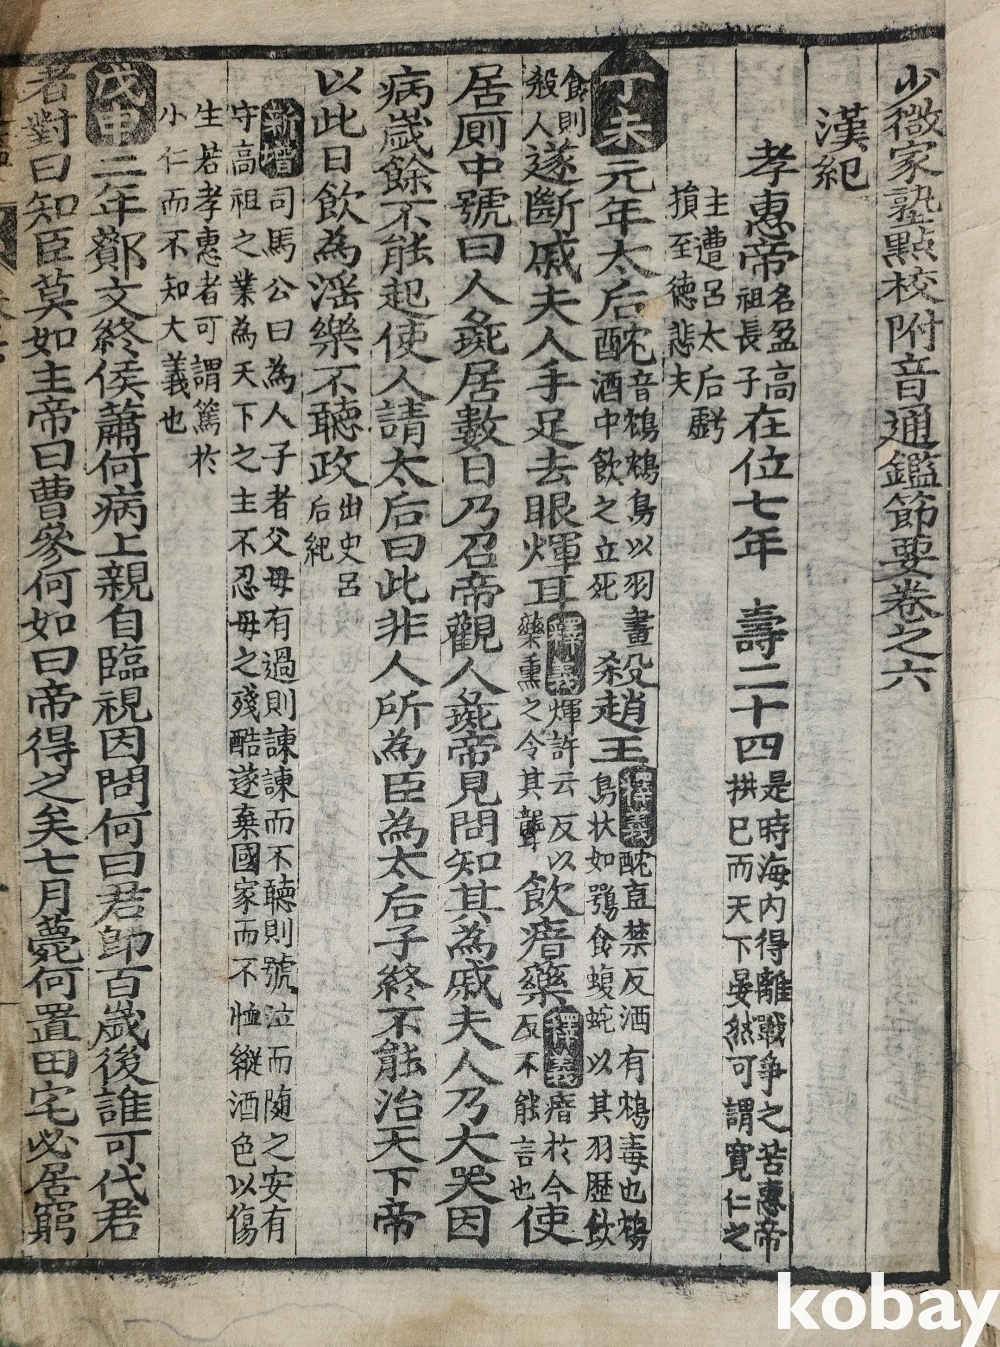 少微家塾點校附音通鑑節要卷之六
漢紀
孝惠帝名盈高祖長子在位七年 壽二十四是時海內得離戰爭之苦惠帝拱已而天下晏然可謂寬仁之
主遭呂太后虧損至德悲夫
丁未元年太后酖酖音鴆鴆鳥以羽畫酒中飲之立死殺趙王釋義酖直禁反酒有鴆毒也鴆鳥状如鶚食蝮蛇以其羽歷飲
食則殺人遂斷戚夫人手足去眼煇耳釋義煇許云反以藥熏之令其聾飲瘖藥釋義瘖於今反不能言也使
居厠中號曰人彘居數日乃召帝觀人彘帝見問知其為戚夫人乃大哭因
病歲餘不能起使人請太后曰此非人所為臣為太后子終不能治天下帝
以此日飲為滛樂不聽政出史呂后紀
新增司馬公曰為人子者父母有過則諫諫而不聽則號泣而随之安有守高祖之業為天下之主不忍母之殘酷遂棄國家而不恤縱酒色以傷
生若孝惠者可謂篤於小仁而不知大義也
戊申二年酇文終侯蕭何病上親自臨視因問何曰君卽百歲後誰可代君
者對曰知臣莫如主帝曰曹參何如曰帝得之矣七月薨何置田宅必居窮
kobay